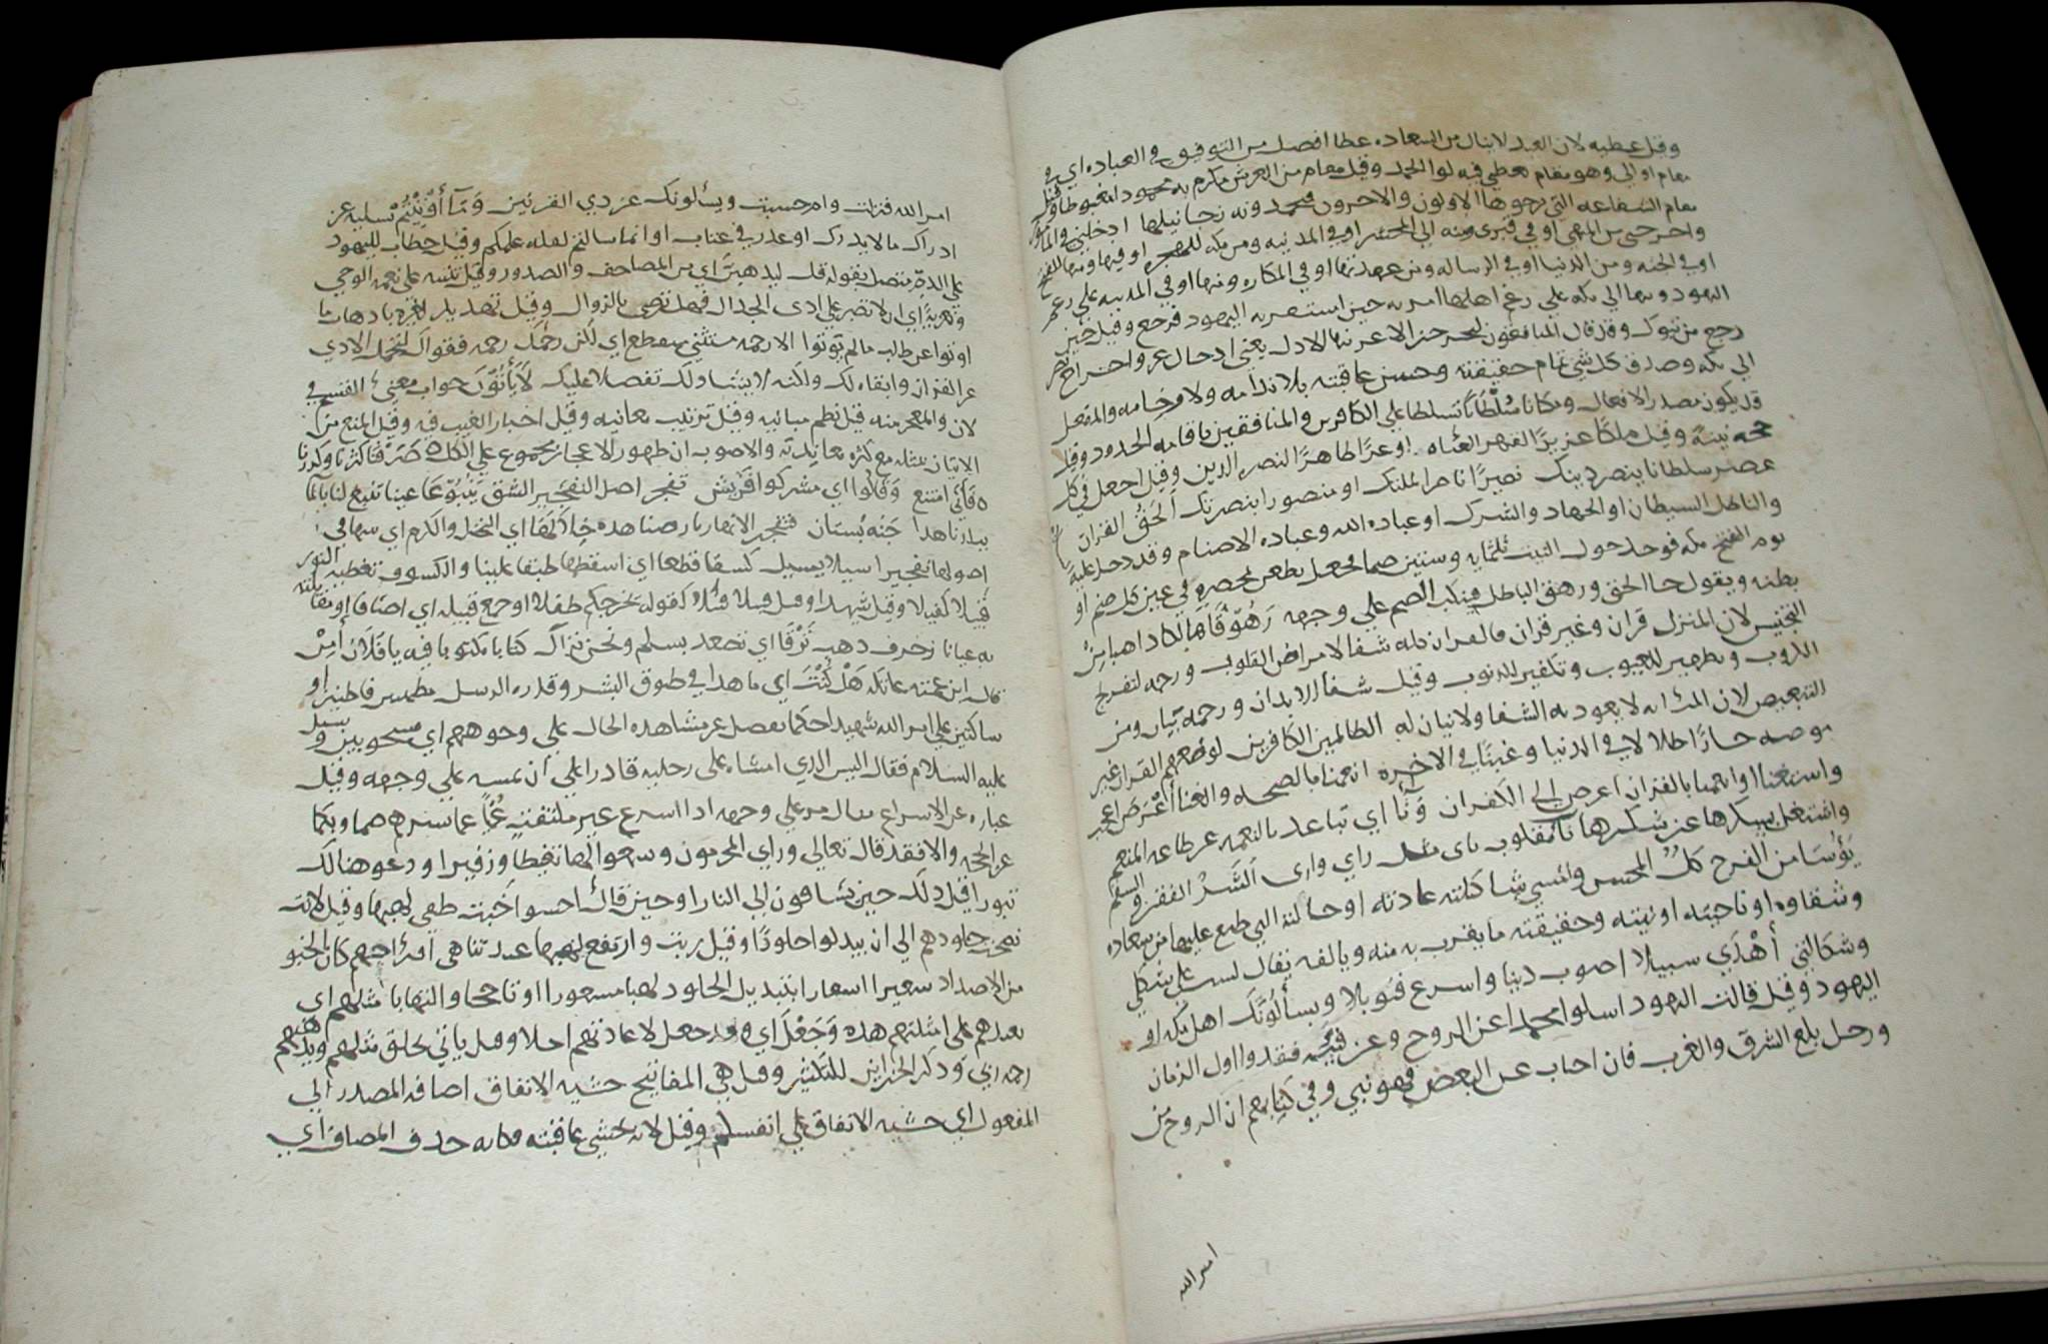 وقيل عطيه لان العبد لا ينال من السعاده عطا افضل من التوفيق في العباده اي في
مقام اولي وهو مقام يعطي فيه لوا الحمد وقيل مقام من العرش يكرم به محمودا مغبوطا وقيل
مقام الشفاعه التي يرجوها الاولون والاخرون فيحمدونه رجا نيلها ادخلني في
او في الجنه ومن الدنيا او في الرساله ومن عهدتها او في المكاره ومنها او في المدينه علي رغم
اليهود ومنها الي مكه علي رغم اهلها امر به حين استفزته اليهود فرجع وقيل حين
رجع من تبوك وقد قال المنافقون ليخرجن الاعز منها الاذل يعني ادخال عز واخراج نصر
الي مكه وصدق كل شي تمام حقيقته وحسن عاقبته بلا ندامه ولا وخامه والمفعل
قد يكون مصدر الافعال ومكانا سُلْطَانًا تسلطا علي الكافرين والمنافقين باقامه الحدود وقيل
حجه بينة وقيل ملكًا عزيزًا لقهر العتاه اوعزًا ظاهرًا لنصره الدين وقيل اجعل في كل
عصر سلطانا ينصر دينك نصيرًا ناصرا لملتك او منصورا بنصرتك الحَقُّ القران
والباطل الشيطان او الجهاد والشرك او عباده الله وعباده الاصنام وقد دخل عليه
يوم الفتح مكه فوجد حول البيت ثلثمايه وستين صنما فجعل يطعن بمخصره في عين كل صنم او
بطنه ويقول جا الحق وزهق الباطل فينكب الصنم علي وجهه زَهُوقًا هالكا ذاهبا مِنْ
التجنيس لان المنزل قران وغير قران فالقران كله شفا لامراض القلوب ورحمه لتفريج
الكروب وتطهير للعيوب وتكفير للذنوب وقيل شفا للابدان ورحمه بيان ومن
للتبعيض لان المراد به لا يعود به الشفا ولا بيان له الظالمين الكافرين لوضعهم القران غير
موضعه خسارًا ضلالا في الدنيا وغبنًا في الاخره انعمنا بالصحه والغنا أَعْرَضَ
واستغنا او انعمنا بالقران اعرض الي الكفران وَنَأَا اي تباعد بالنعمه عن طاعه المنعم
واشتغل بسكرها عن شكرها نا مقلوب ناي مثل راي وارى الشَّرُّ الفقر والسقم
يَؤُسًا من الفرح كلٌ المحسن والمسي شاكلته عادته او حالته التي طبع عليها من سعاده
وشقاوه او ناحيته او نيته وحقيقته ما يقرب به منه ويالفه يقال لست علي شكلي
وشاكلتي أَهْدَي سبيلا اصوب دينا واسرع قبولا ويسألُونَكَ اهل مكه او
اليهود وقيل قالت اليهود اسلوا محمدا عن الروح وعن فتيه فقدوا اول الزمان
ورجل بلغ الشرق والغرب فان اجاب عن البعض فهو نبي وفي كتابهم ان الروح من
امر الله
امر الله فنزلت وام حسبت ويسئلونك عن ذي القرنين وَمَآ أُوْتِيْتُمْ تسليه عن
ادراك ما لا يدرك او عذر في عتاب او انما سالتم لقله علمكم وقيل خطاب لليهود
علي الذمّ متصل بقوله قل ليذهبنّ اي من المصاحف والصدور وقيل تنبيه علي نعمه الوحي
وتعزية اي ان لا تصبر علي اذى الجدال فهل ترضى بالزوال وقيل تهديد لغيره باذهاب ما
اوتوا عن طلب ما لم يؤتوا الا رحمه مستثني منقطع اي لكن رحمك رحمه فقواك لتحمل الاذي
عن القران وابقاه لك ولكنه لا يشا ذلك تفضلا عليك لَا يَأْتُوْنَ جواب معني القسم في
لان والمعجز منه قيل نظم مبانيه وقيل ترتيب معانيه وقيل اخبار الغيب فيه وقيل المنع من
الاتيان بمثله مع كثره معانديه والاصوب ان ظهور الاعجاز بمجموع علي الكل صَرَّفْنَا كررنا وكررنا
فَأَبَي امتنع وَقَالُوا اي مشركوا قريش تفجر اصل التفجير الشق يَنْبُوْعًا عينا تنبع لنا بالما
ببلدنا هذا جَنّه بُستان فتفجر الانهار بارضنا هذه خِلَالَهَا اي النخل والكرم اي سهما في
اصولها تفجيرا سيلا يسيل كسفًا قطعا اي اسقطها طبقا علينا والكسوف تغطيه النور
قَبِيلًا كفيلا وقيل شهيدا وقيل قبيلا قبلا كقوله يخرجكم طفلا او جمع قبيله اي اصنافا او مقابلته
به عيانا زخرف ذهب تَرْقَا اي تصعد بسلم ونحن نراك كتابا مكتوبا فيه يا فلان امِنْ
قاله ابن عمته عاتكه هَلْ كُنْتَ اي ما هذا في طوق البشر وقدره الرسل مطمين قاطنين او
ساكنين علي امر الله شهيدا حكما يفصل عن مشاهده الحال علي وجوههم اي مسحوبين وسيل
عليه السلام فقال اليس الذي امشاه علي رجليه قادر اعلي ان يمشيه علي وجهه وقيل
عباره عن الاسراع يقال مر علي وجهه اذا اسرع غير ملتفت عُمْيًا عما سرهم صما وبكما
عن الحجه والا فقد قال تعالي وراي المجرمون وسمعوا لها تغيظا وزفيرا ودعوا هنالك
ثبورا قيل ذلك حين يساقون الي النار او حين قال احسوا خَبَت طفي لهبها وقيل لانت
نضجت جلودهم الي ان يبدلوا جلودًا وقيل ربت وارتفع لهبها عند تناهي افراحهم كان الخبو
من الاضداد سعيرا اسعارا بتبديل الجلود لهبا مسعورا او تاججا والتهابا مثلهم اي
يعيدهم علي امثلتهم هذه وَجَعَلَ اي وقد جعل لاعادتهم اجلا وقيل ياتي بخلق مثلهم ويذهبهم
رحمه ربي وذكر الخزاين للتكثير وقيل هي المفاتيح خشيه الانفاق اضافه المصدر الي
المفعول اي خشيه الانفاق علي انفسكم وقيل لانه يخشي عاقبته فكانه حذف المضاف اي